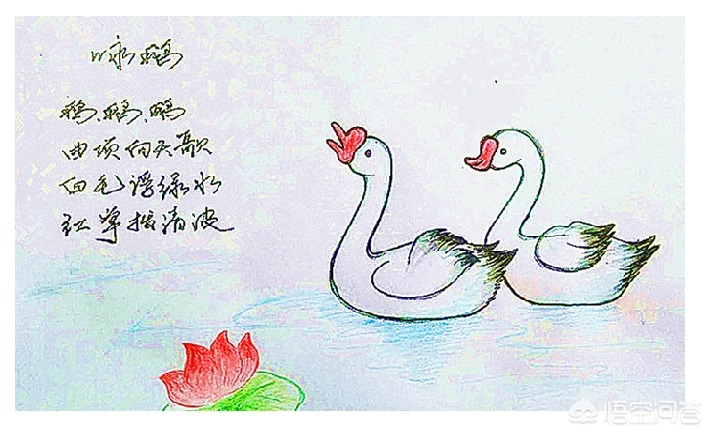 咏鹅
鹅、鹅、鹅
曲项向天歌
白毛浮绿水
红掌拨清波
悟空问答